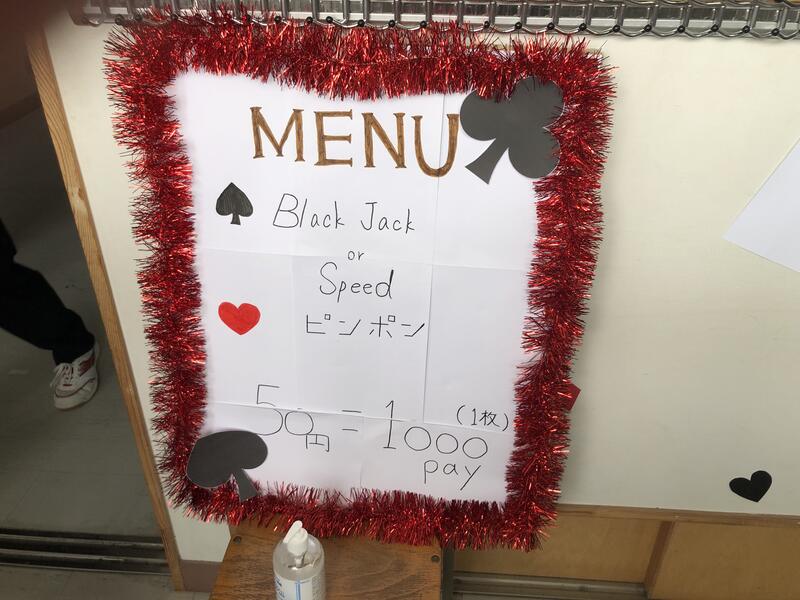 MENU
Black Jack
or
Speed
ピンポン
50円 = 1000 (1枚)
pay